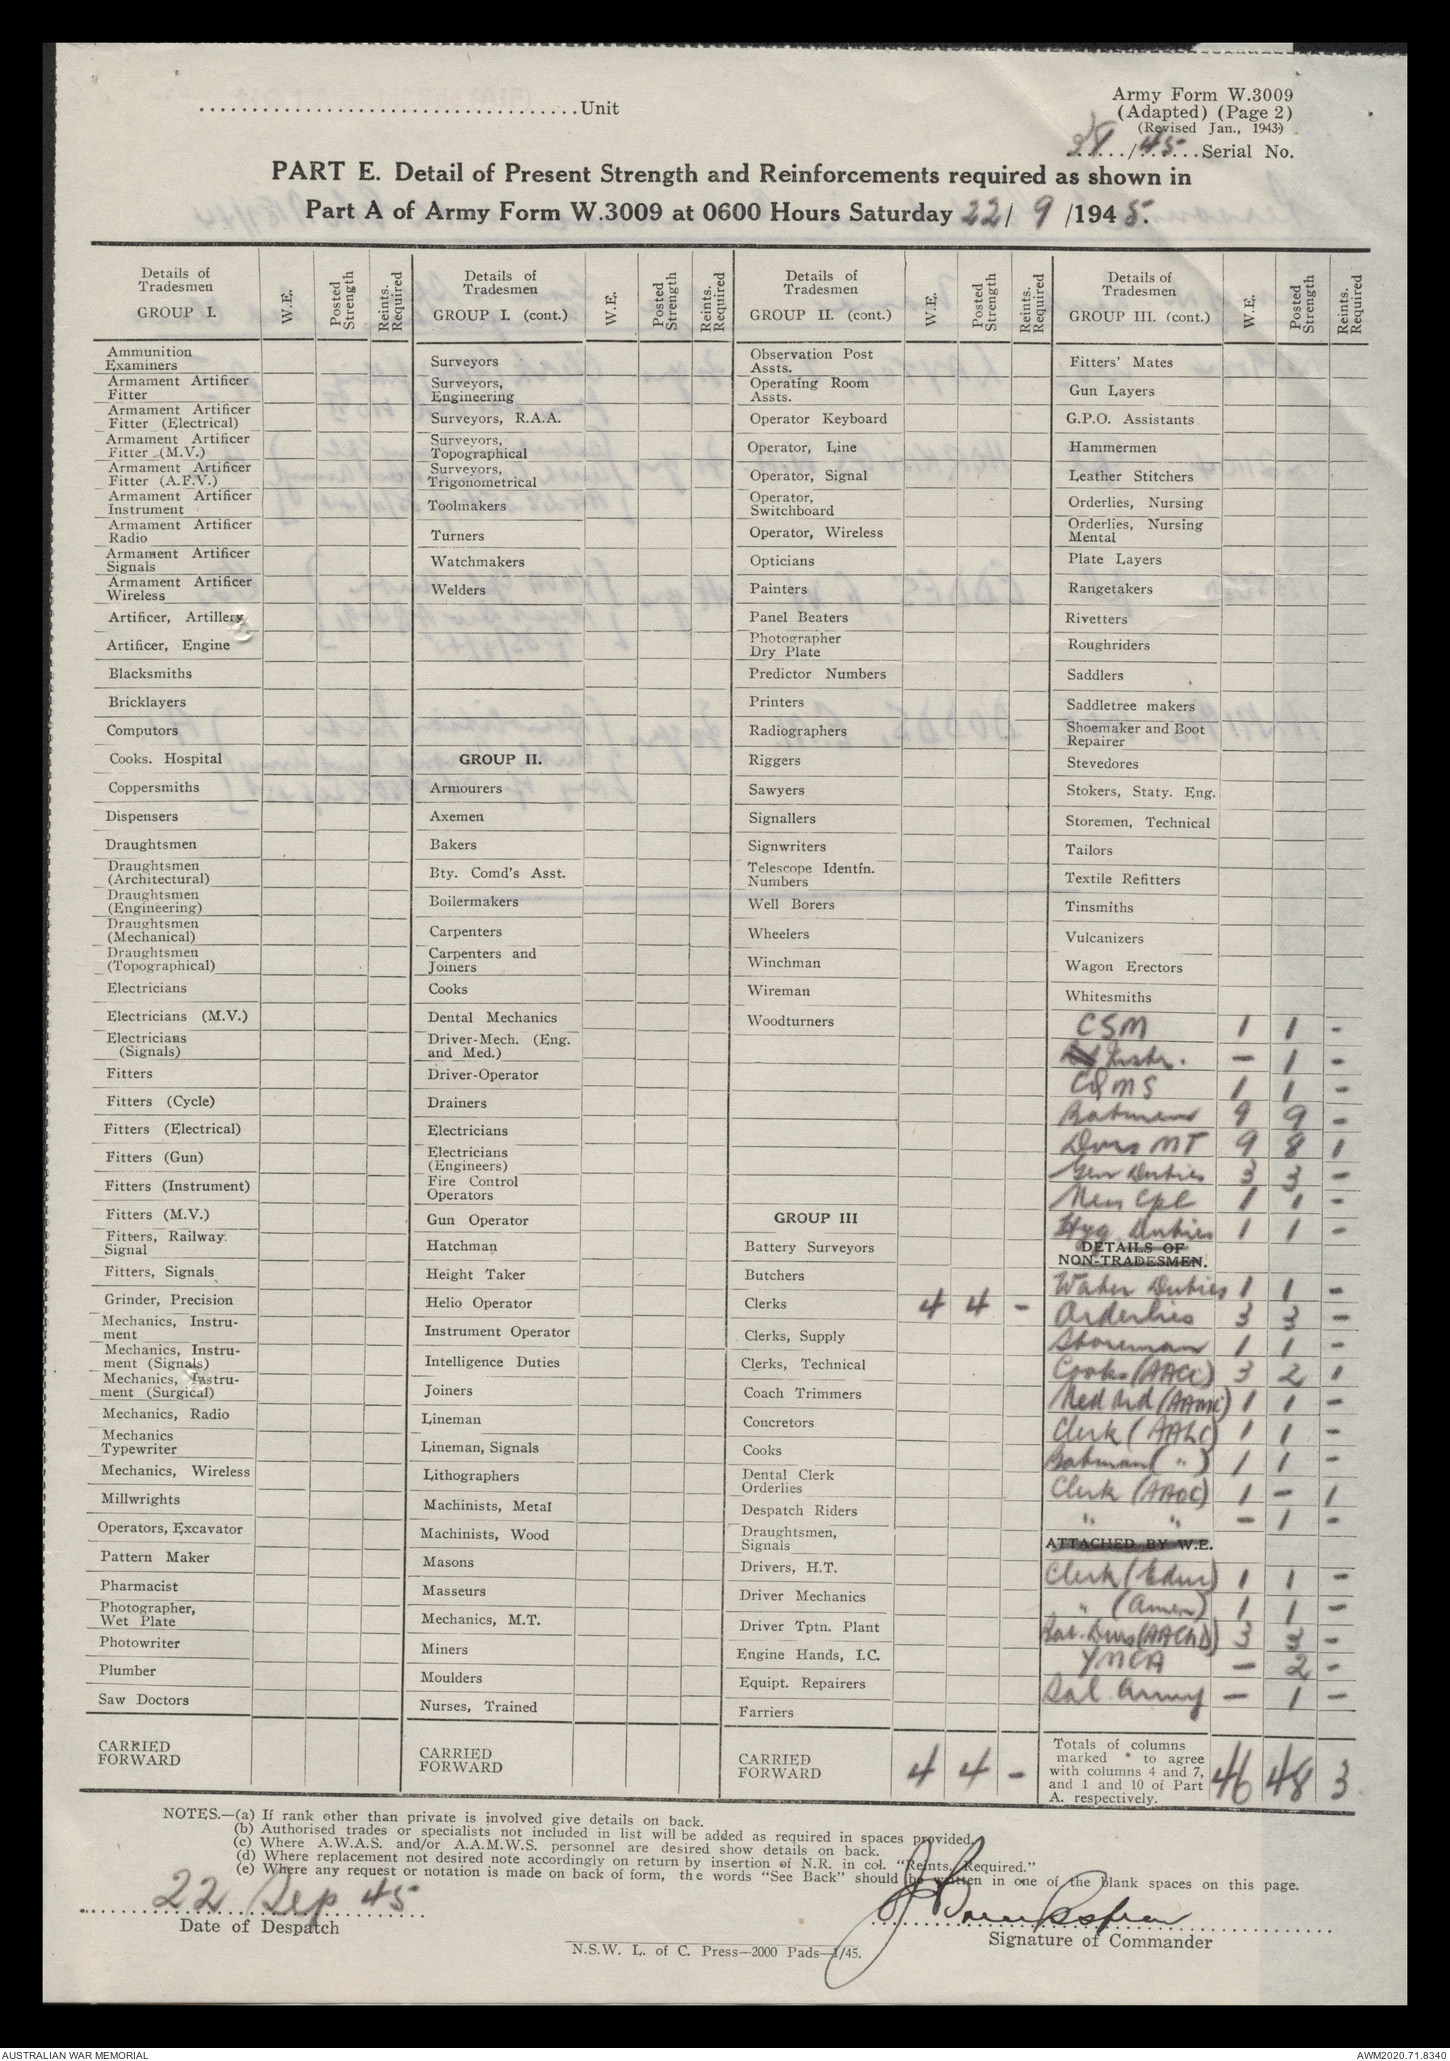 ....................................Unit
Army Form W.3009
(Adapted) (Page 2)
(Revised Jan., 1943)
/45 Serial No.
PART E. Detail of Present Strength and Reinforcements required as shown in
Part A of Army Form W.3009 at 0600 Hours Saturday 22/ 9 /1945.
Details of Tradesmen GROUP I. W.E. Posted Strength Reints. Required
Ammunition Examiners
Armament Artificer Fitter
Armament Artificer Fitter (Electrical)
Armament Artificer Fitter (M.V.)
Armament Artificer Fitter (A.F.V.)
Armament Artificer Instrument
Armament Artificer Radio
Armament Artificer Signals
Armament Artificer Wireless
Artificer, Artillery
Artificer, Engine
Blacksmiths
Bricklayers
Computors
Cooks. Hospital
Coppersmiths
Dispensers
Draughtsmen
Draughtsmen (Architectural)
Draughtsmen (Engineering)
Draughtsmen (Mechanical)
Draughtsmen (Topographical)
Electricians
Electricians (M.V.)
Electricians (Signals)
Fitters
Fitters (Cycle)
Fitters (Electrical)
Fitters (Gun)
Fitters (Instrument)
Fitters (M.V.)
Fitters, Railway. Signal
Fitters, Signals
Grinder, Precision
Mechanics, Instru-
ment
Mechanics, Instru-
ment (Signals)
Mechanics, Instru-
ment (Surgical)
Mechanics, Radio
Mechanics Typewriter
Mechanics, Wireless
Millwrights
Operators, Excavator
Pattern Maker
Pharmacist
Photographer, Wet Plate
Photowriter
Plumber
Saw Doctors
CARRIED FORWARD
Details of Tradesmen GROUP I. (cont.) W.E. Posted Strength Reints. Required
Surveyors
Surveyors, Engineering
Surveyors, R.A.A.
Surveyors, Topographical
Surveyors, Trigonometrical
Toolmakers
Turners
Watchmakers
Welders
GROUP II.
Armourers
Axemen
Bakers
Bty. Comd's Asst.
Boilermakers
Carpenters
Carpenters and Joiners
Cooks
Dental Mechanics
Driver-Mech. (Eng. and Med.)
Driver-Operator
Drainers
Electricians
Electricians (Engineers)
Fire Control Operators
Gun Operator
Hatchman
Height Taker
Helio Operator
Instrument Operator
Intelligence Duties
Joiners
Lineman
Lineman, Signals
Lithographers
Machinists, Metal
Machinists, Wood
Masons
Masseurs
Mechanics, M.T.
Miners
Moulders
Nurses, Trained
CARRIED FORWARD
Details of Tradesmen GROUP II. (cont.) W.E. Posted Strength Reints. Required
Observation Post Assts.
Operating Room Assts.
Operator Keyboard
Operator, Line
Operator, Signal
Operator, Switchboard
Operator, Wireless
Opticians
Painters
Panel Beaters
Photographer Dry Plate
Predictor Numbers
Printers
Radiographers
Riggers
Sawyers
Signallers
Signwriters
Telescope Identfn. Numbers
Well Borers
Wheelers
Winchman
Wireman
Woodturners
GROUP III
Battery Surveyors
Butchers
Clerks 4 4 -
Clerks, Supply
Clerks, Technical
Coach Trimmers
Concretors
Cooks
Dental Clerk Orderlies
Despatch Riders
Draughtsmen, Signals
Drivers, H.T.
Driver Mechanics
Driver Tptn. Plant
Engine Hands, I.C.
Equipt. Repairers
Farriers
CARRIED FORWARD 4 4 -
Details of Tradesmen GROUP III. (cont.) W.E. Posted Strength Reints. Required
Fitters' Mates
Gun Layers
G.P.O. Assistants
Hammermen
Leather Stitchers
Orderlies, Nursing
Orderlies, Nursing Mental
Plate Layers
Rangetakers
Rivetters
Roughriders
Saddlers
Saddletree makers
Shoemaker and Boot Repairer
Stevedores
Stokers, Staty. Eng.
Storemen, Technical
Tailors
Textile Refitters
Tinsmiths
Vulcanizers
Wagon Erectors
Whitesmiths
CSM 1 1 -
Instr. - 1 -
CQMS 1 1 -
Batmen 9 9 -
Dvrs MT 9 8 1
Gen Duties 3 3 -
Mess Cpl 1 1 -
Hyg Duties 1 1 -
DETAILS OF NON-TRADESMEN.
Water Duties 1 1 -
Orderlies 3 3 -
Storeman 1 1 -
Cooks (AACC) 3 2 1
Med Ord (AAMC) 1 1 -
Clerk (AALC) 1 1 -
Batman ( " ) 1 1 -
Clerk (AAOC) 1 - 1
" " - 1 -
ATTACHED BY W.E.
Clerk (Educ) 1 1 -
" (Amen) 1 1 -
Dvrs (AAChD) 3 3 -
YMCA - 2 -
Sal Army - 1 -
Totals of columns marked * to agree with columns 4 and 7, and 1 and 10 of Part A. respectively. 46 48 3
NOTES.—(a) If rank other than private is involved give details on back.
(b) Authorised trades or specialists not included in list will be added as required in spaces provided.
(c) Where A.W.A.S. and/or A.A.M.W.S. personnel are desired show details on back.
(d) Where replacement not desired note accordingly on return by insertion of N.R. in col. "Reints. Required."
(e) Where any request or notation is made on back of form, the words "See Back" should be written in one of the blank spaces on this page.
22 Sep 45
Date of Despatch
Signature of Commander
N.S.W. L. of C. Press—2000 Pads—1/45.
AUSTRALIAN WAR MEMORIAL
AWM2020.71.8340